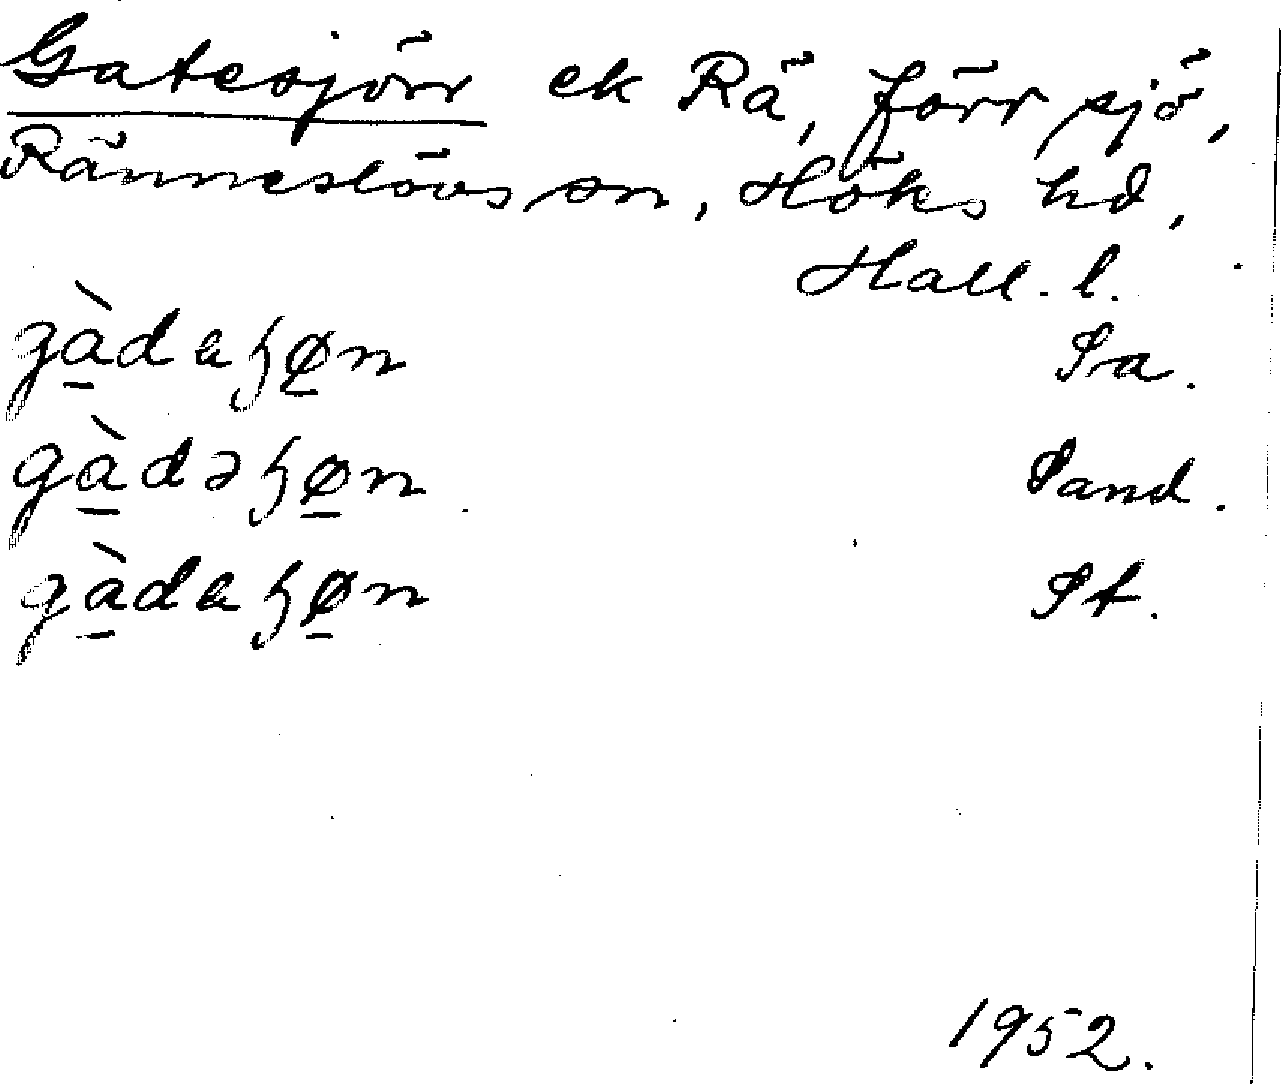 Gatesjön ek Rä, förr sjö,
Ränneslövs sn, Höks hd,
Hall. l.
gàdeɧøn Sa.
gàdəɧøn Sand.
gàdeɧøn St.
1952.